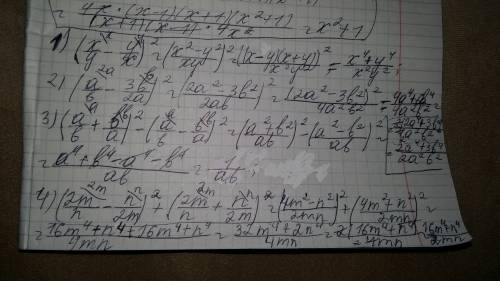 = 4x · (x-1)(x+1)(x²+1) / (x+1)(x-1) · 4x² = x²+1
1) (x/y - y/x)² = (x²-y²/xy)² = ((x-y)(x+y))²/x²y² = x⁴+y⁴/x²y²;
2) (a/b - 3b/2a)² = (2a²-3b²/2ab)² = (2a²-3b²)²/4a²b² = 4a⁴+
3) (a/b + b/a)² - (a/b - b/a)² = (a²+b²/ab)² - (a²-b²/ab)² = 2a⁴+3b⁴/2a²b²
= a⁴+b⁴-a⁴-b⁴/ab = 1/ab;
4) (2m/n - n/2m)² + (2m/n + n/2m)² = (4m²-n²/2mn)² + (4m²+n²/2mn)² =
= 16m⁴+n⁴+16m⁴+n⁴/4mn = 32m⁴+2n⁴/4mn = 2(16m⁴+n⁴)/4mn = 16m⁴+n⁴/2mn